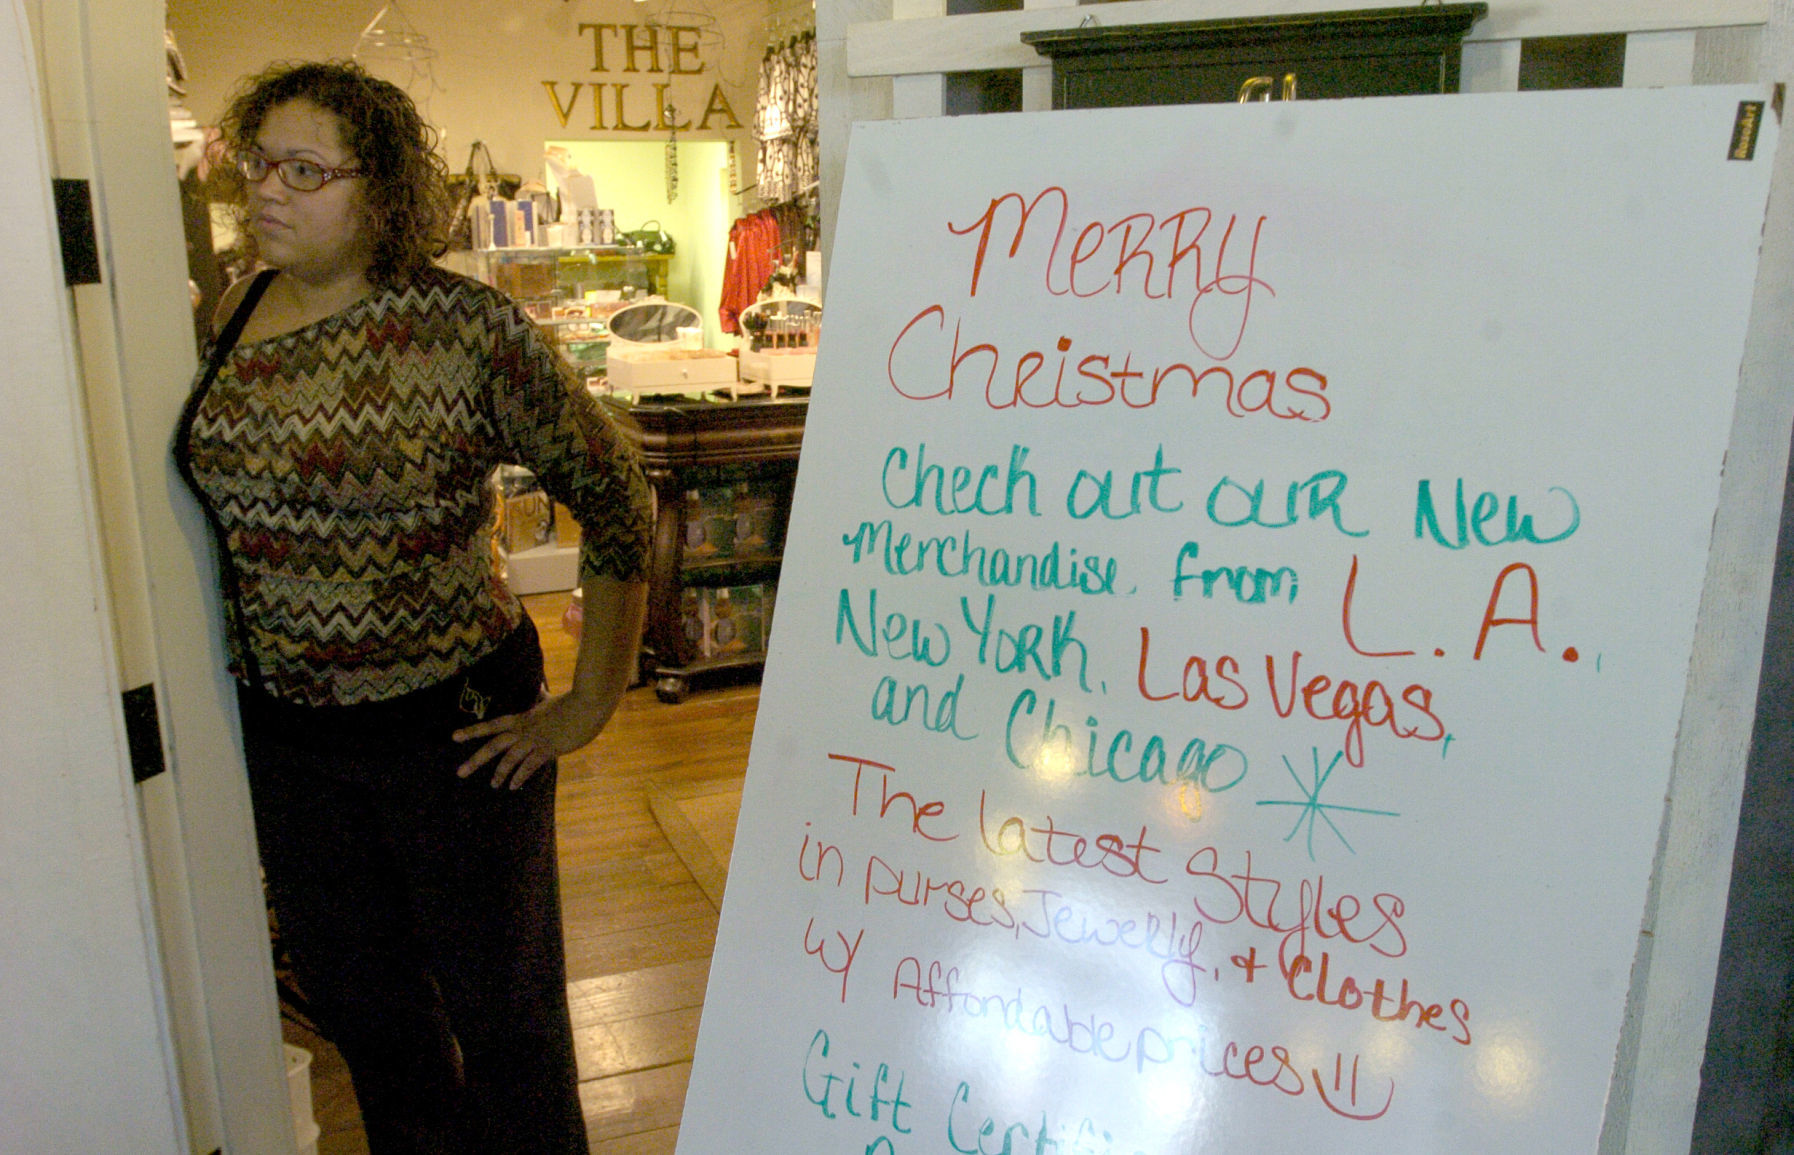 THE
VILLA
MeRRy
Christmas
Check out ouR New
Merchandise from L.A.,
New YoRK, Las Vegas,
and Chicago
The Latest Styles
in purses, Jewelry, + Clothes
w/ Affordable prices
Gift